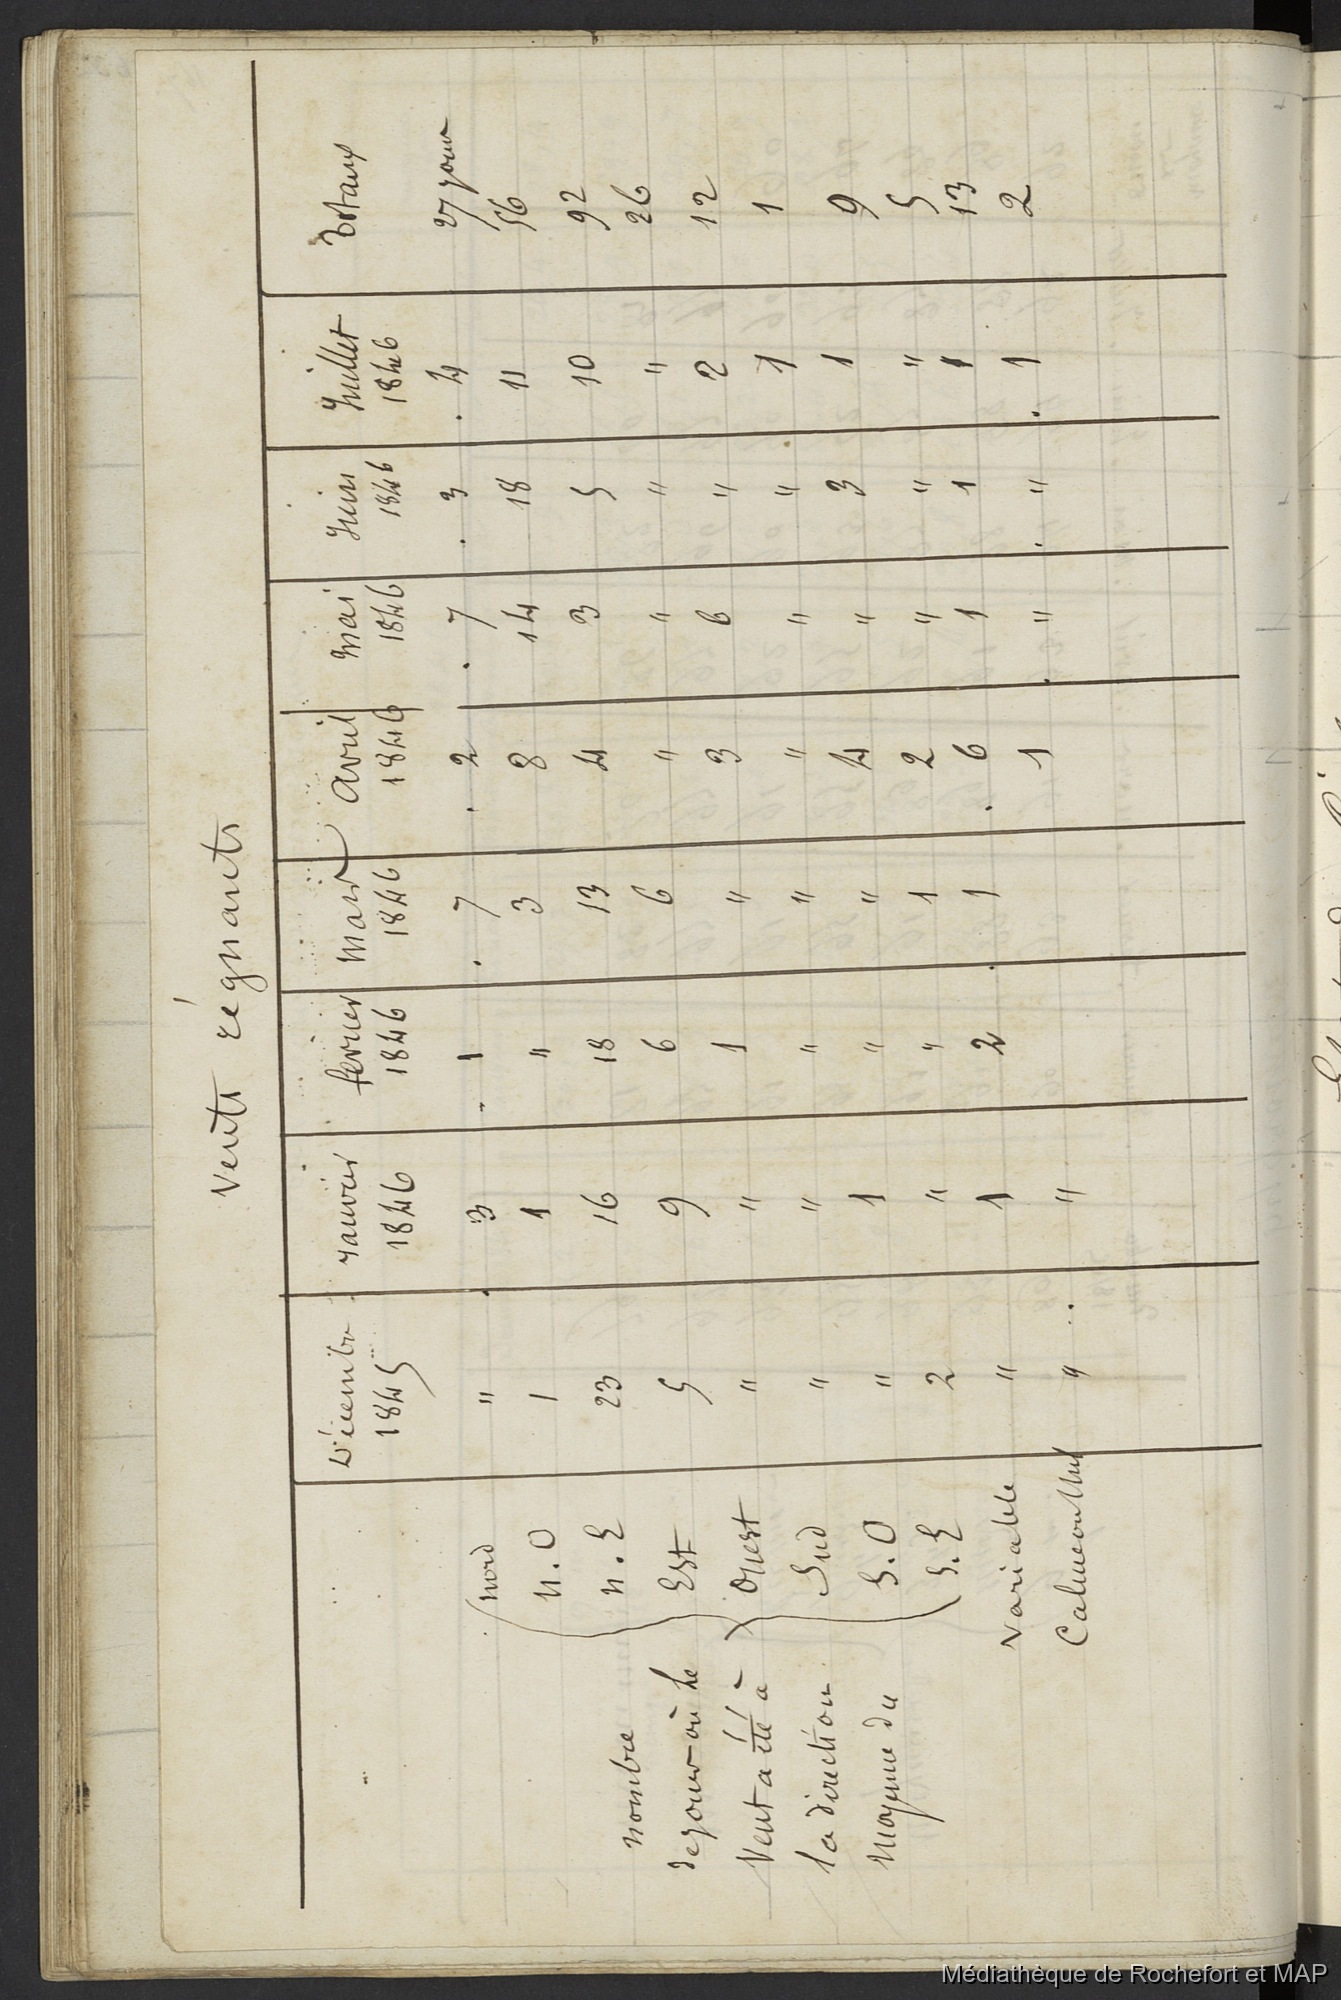 Vents régnants
Décembre 1845 | Janvier 1846 | février 1846 | Mars 1846 | Avril 1846 | Mai 1846 | Juin 1846 | Juillet 1846 | Totaux
nombre
de jours où le
Vent a été à
la direction
moyenne du
Nord | " | 3 | 1 | 7 | 2 | 7 | 3 | 4 | 27 jours
N.O | 1 | 1 | " | 3 | 8 | 14 | 18 | 11 | 56
N.E | 23 | 16 | 18 | 13 | 4 | 3 | 5 | 10 | 92
Est | 5 | 9 | 6 | 6 | " | " | " | " | 26
Ouest | " | " | 1 | " | 3 | 6 | " | 2 | 12
Sud | " | " | " | " | " | " | " | 1 | 1
S.O | " | 1 | " | " | 4 | " | 3 | 1 | 9
S.E | 2 | " | " | 1 | 2 | " | " | " | 5
Variable | " | 1 | 2 | 1 | 6 | 1 | 1 | 1 | 13
Calme ou Nul | " | " | 1 | " | " | 1 | 2
Médiathèque de Rochefort et MAP